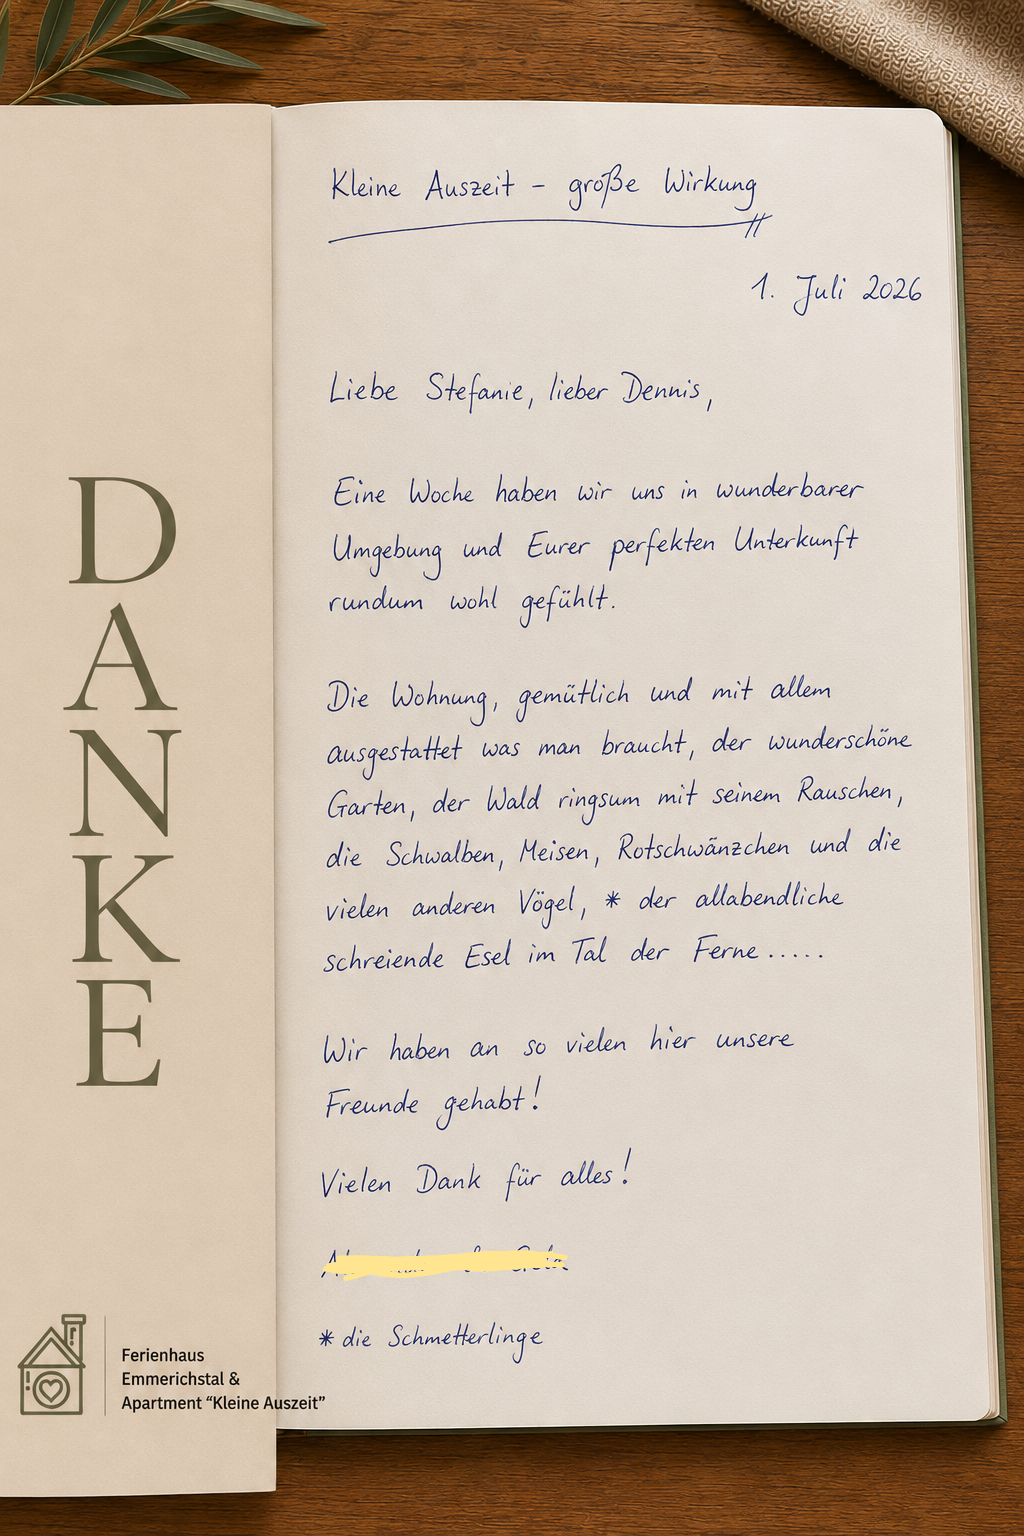 DANKE
Ferienhaus
Emmerichstal &
Apartment “Kleine Auszeit”
Kleine Auszeit – große Wirkung
1. Juli 2026
Liebe Stefanie, lieber Dennis,
Eine Woche haben wir uns in wunderbarer
Umgebung und Eurer perfekten Unterkunft
rundum wohl gefühlt.
Die Wohnung, gemütlich und mit allem
ausgestattet was man braucht, der wunderschöne
Garten, der Wald ringsum mit seinem Rauschen,
die Schwalben, Meisen, Rotschwänzchen und die
vielen anderen Vögel, * der allabendliche
schreiende Esel im Tal der Ferne.....
Wir haben an so vielen hier unsere
Freunde gehabt!
Vielen Dank für alles!
* die Schmetterlinge